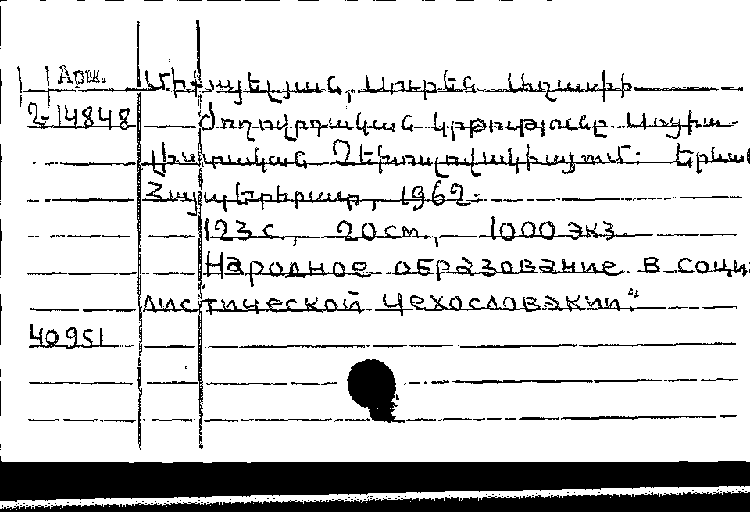 Արմ. Միքայելյան, Սուրեն Աղասիի
2-14848 Ժողովրդական կրթությունը Սոցիա-
լիստական Չեխոսլովակիայում: Երևան
Հայպետհրատ, 1962.
123 с., 20 см., 1000 экз.
Народное образование в социа
листической Чехословакии."
40951